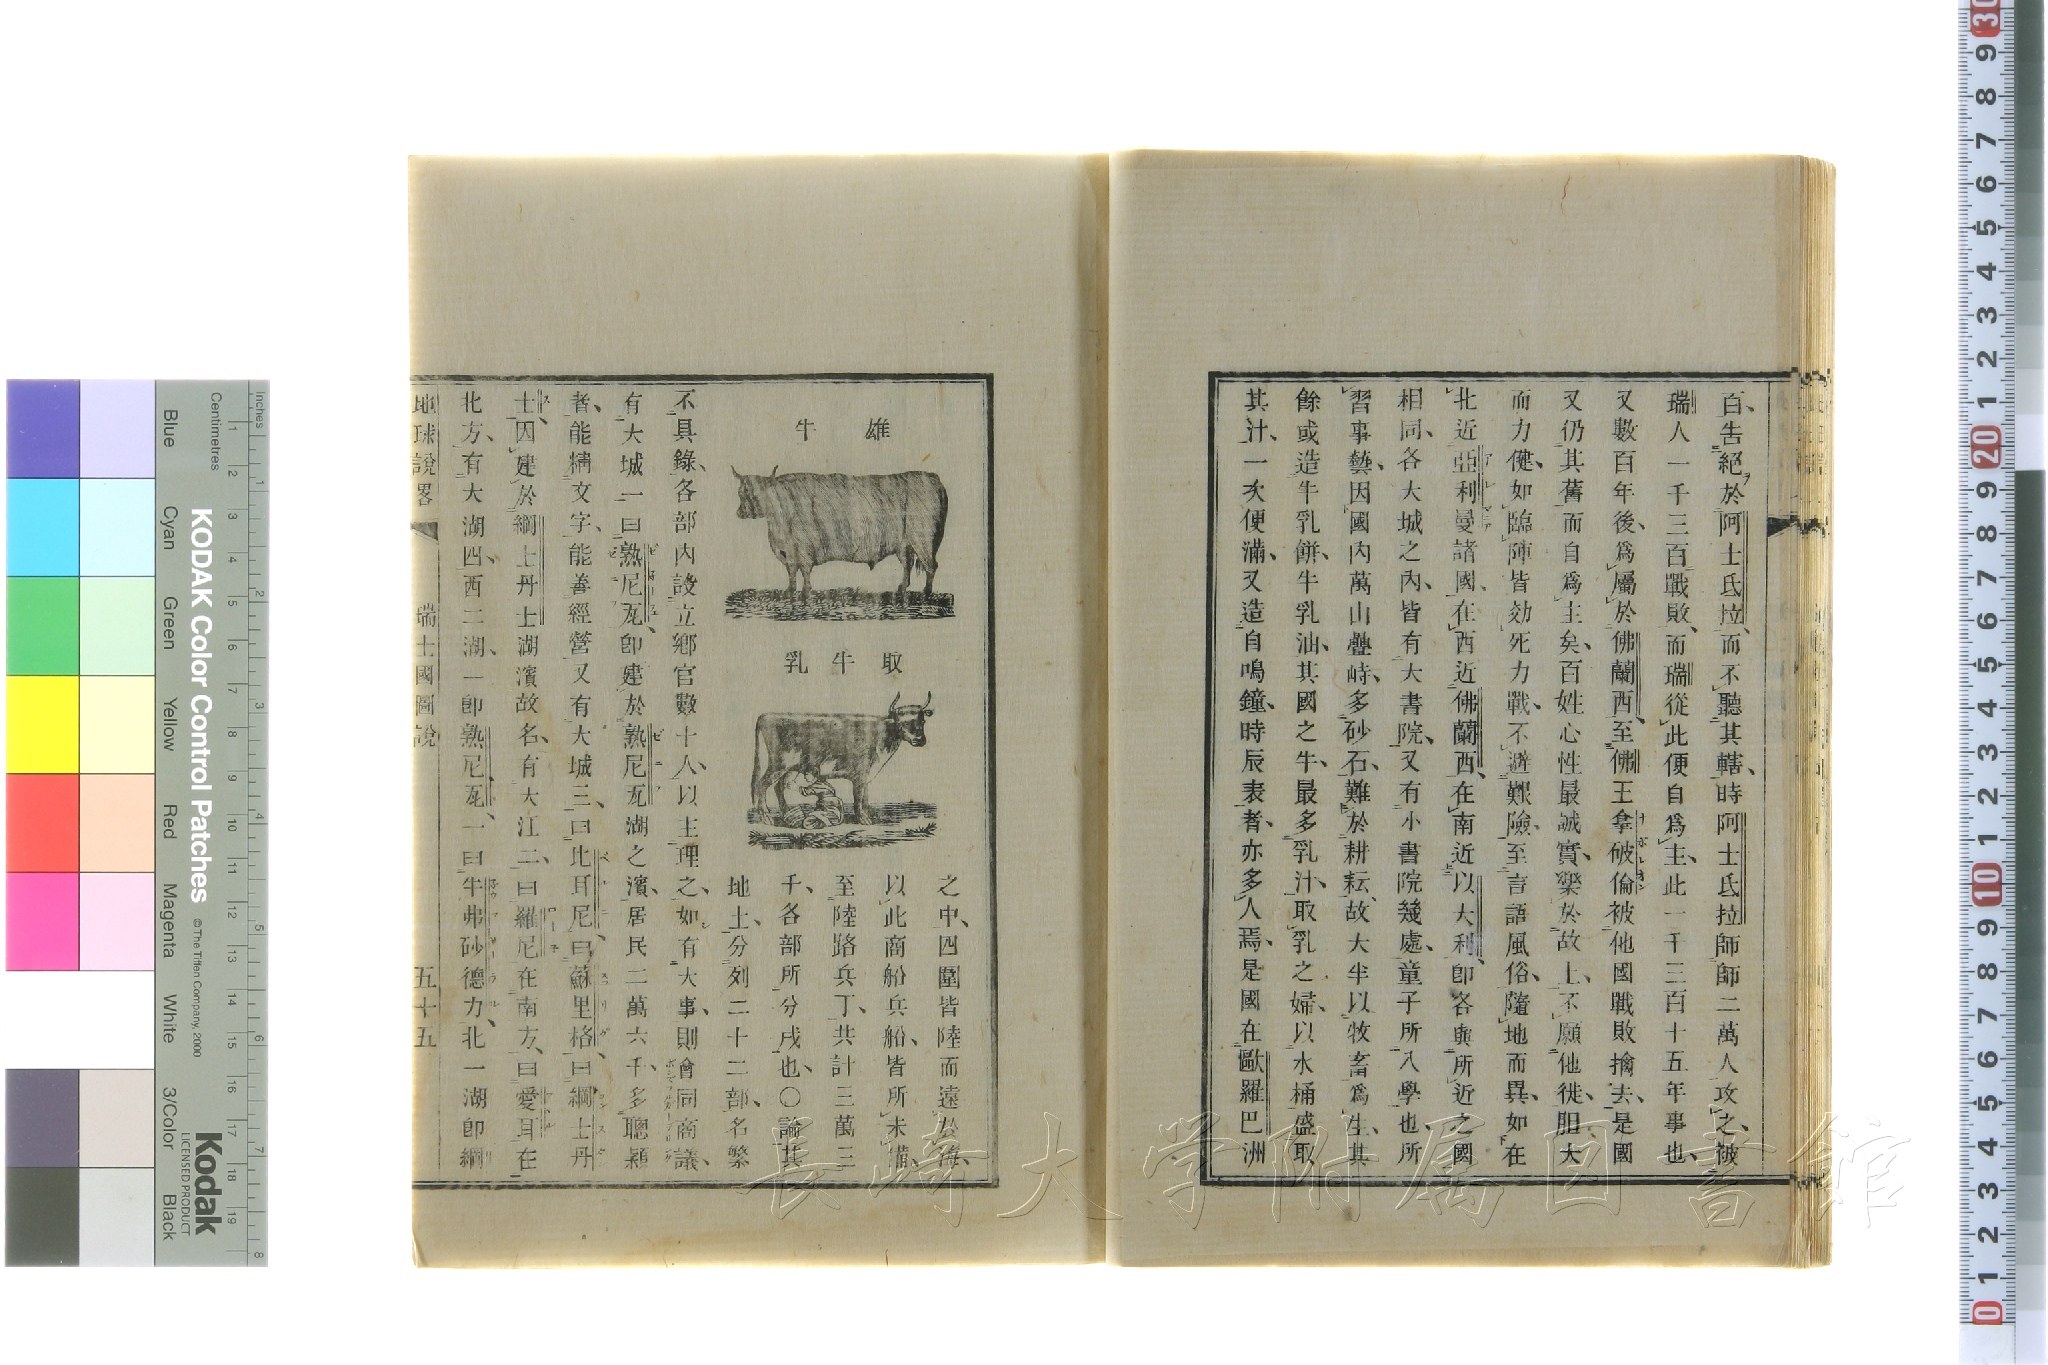 百吿絕於阿士氐拉、而不聽其轄、時阿士氐拉師師二萬人攻之、被
瑞人一千三百戰敗、而瑞從此便自爲主、此一千三百十五年事也、
又數百年後、爲屬於佛蘭西、至佛王拿破倫被他國戰敗擒去、是國
又仍其舊而自爲主矣、百姓心性最誠實、樂於故土、不願他徙、胆大
而力健、如臨陣皆効死力戰、不避艱險、至言語風俗、隨地而異、如在
北近亞利曼諸國、在西近佛蘭西、在南近以大利、卽各與所近之國
相同、各大城之內、皆有大書院、又有小書院幾處、童子所入學也、所
習事藝、因國內萬山疊峙、多砂石、難於耕耘、故大半以牧畜爲生、其
餘或造牛乳餅、牛乳油、其國之牛、最多乳汁、取乳之婦、以水桶盛取
其汁、一次便滿、又造自鳴鐘、時辰表者、亦多人焉、是國在歐羅巴洲
之中、四圍皆陸而遠於海、
以此商船兵船、皆所未備、
至陸路兵丁、共計三萬三
千、各部所分戌也、○論其
地土、分列二十二部、名繁
雄牛
取牛乳
不具錄、各部內設立鄉官數十人、以主理之、如有大事、則會同商議、
有大城一曰熟尼亙、卽建於熟尼亙湖之濱、居民二萬六千、多聰穎
者、能精文字、能善經營、又有大城三、曰比耳尼、曰蘇里格、曰綱士丹
士、因建於綱士丹士湖濱故名、有大江二、曰羅尼在南方、曰愛耳在
北方、有大湖四、西二湖、一卽熟尼亙、一曰牛弗砂德力、北一湖卽綱
地球說畧
瑞士國圖說
五十五
長崎大学附属図書館
KODAK Color Control Patches
© The Tiffen Company, 2000
Kodak
LICENSED PRODUCT
Inches
Centimetres
Blue
Cyan
Green
Yellow
Red
Magenta
White
3/Color
Black